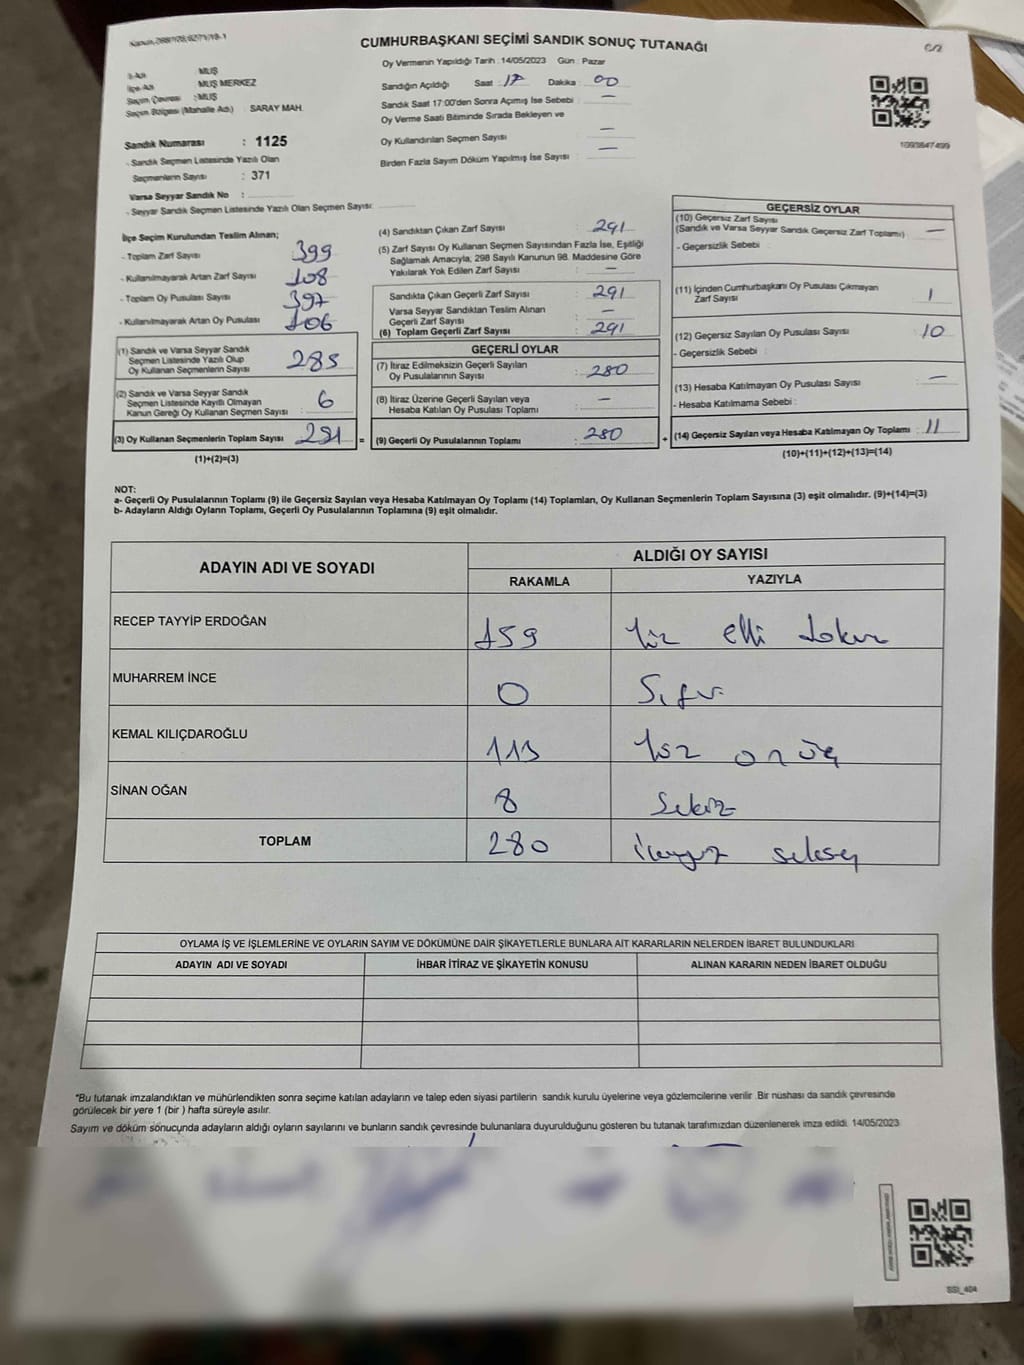 CUMHURBAŞKANI SEÇİMİ SANDIK SONUÇ TUTANAĞI
C/2
İl Adı : MUŞ
İlçe Adı : MUŞ MERKEZ
Seçim Çevresi : MUŞ
Seçim Bölgesi (Mahalle Adı) : SARAY MAH.
Sandık Numarası : 1125
- Sandık Seçmen Listesinde Yazılı Olan
Seçmenlerin Sayısı : 371
Varsa Seyyar Sandık No :
- Seyyar Sandık Seçmen Listesinde Yazılı Olan Seçmen Sayısı:
Oy Vermenin Yapıldığı Tarih : 14/05/2023 Gün : Pazar
Sandığın Açıldığı Saat : 17 Dakika : 00
Sandık Saat 17:00'den Sonra Açımış İse Sebebi : —
Oy Verme Saati Bitiminde Sırada Bekleyen ve
Oy Kullandırılan Seçmen Sayısı : —
Birden Fazla Sayım Döküm Yapılmış İse Sayısı : —
1093847499
İlçe Seçim Kurulundan Teslim Alınan;
- Toplam Zarf Sayısı : 399
- Kullanılmayarak Artan Zarf Sayısı : 108
- Toplam Oy Pusulası Sayısı : 397
- Kullanılmayarak Artan Oy Pusulası : 106
(1) Sandık ve Varsa Seyyar Sandık
Seçmen Listesinde Yazılı Olup
Oy Kullanan Seçmenlerin Sayısı : 285
(2) Sandık ve Varsa Seyyar Sandık
Seçmen Listesinde Kayıtlı Olmayan
Kanun Gereği Oy Kullanan Seçmen Sayısı : 6
(3) Oy Kullanan Seçmenlerin Toplam Sayısı 291 =
(1)+(2)=(3)
(4) Sandıktan Çıkan Zarf Sayısı : 291
(5) Zarf Sayısı Oy Kullanan Seçmen Sayısından Fazla İse, Eşitliği
Sağlamak Amacıyla, 298 Sayılı Kanunun 98. Maddesine Göre
Yakılarak Yok Edilen Zarf Sayısı : —
Sandıkta Çıkan Geçerli Zarf Sayısı : 291
Varsa Seyyar Sandıktan Teslim Alınan
Geçerli Zarf Sayısı : —
(6) Toplam Geçerli Zarf Sayısı : 291
GEÇERLİ OYLAR
(7) İtiraz Edilmeksizin Geçerli Sayılan
Oy Pusulalarının Sayısı : 280
(8) İtiraz Üzerine Geçerli Sayılan veya
Hesaba Katılan Oy Pusulası Toplamı : —
(9) Geçerli Oy Pusulalarının Toplamı : 280 +
GEÇERSİZ OYLAR
(10) Geçersiz Zarf Sayısı
(Sandık ve Varsa Seyyar Sandık Geçersiz Zarf Toplamı) : —
- Geçersizlik Sebebi :
(11) İçinden Cumhurbaşkanı Oy Pusulası Çıkmayan
Zarf Sayısı : 1
(12) Geçersiz Sayılan Oy Pusulası Sayısı : 10
- Geçersizlik Sebebi :
(13) Hesaba Katılmayan Oy Pusulası Sayısı : —
- Hesaba Katılmama Sebebi :
(14) Geçersiz Sayılan veya Hesaba Katılmayan Oy Toplamı : 11
(10)+(11)+(12)+(13)=(14)
NOT:
a- Geçerli Oy Pusulalarının Toplamı (9) ile Geçersiz Sayılan veya Hesaba Katılmayan Oy Toplamı (14) Toplamları, Oy Kullanan Seçmenlerin Toplam Sayısına (3) eşit olmalıdır. (9)+(14)=(3)
b- Adayların Aldığı Oyların Toplamı, Geçerli Oy Pusulalarının Toplamına (9) eşit olmalıdır.
ADAYIN ADI VE SOYADI
ALDIĞI OY SAYISI
RAKAMLA YAZIYLA
RECEP TAYYİP ERDOĞAN 159 Yüz elli dokuz
MUHARREM İNCE 0 Sıfır
KEMAL KILIÇDAROĞLU 113 Yüz on üç
SİNAN OĞAN 8 Sekiz
TOPLAM 280 ikiyüz seksen
OYLAMA İŞ VE İŞLEMLERİNE VE OYLARIN SAYIM VE DÖKÜMÜNE DAİR ŞİKAYETLERLE BUNLARA AİT KARARLARIN NELERDEN İBARET BULUNDUKLARI
ADAYIN ADI VE SOYADI İHBAR İTİRAZ VE ŞİKAYETİN KONUSU ALINAN KARARIN NEDEN İBARET OLDUĞU
*Bu tutanak imzalandıktan ve mühürlendikten sonra seçime katılan adayların ve talep eden siyasi partilerin sandık kurulu üyelerine veya gözlemcilerine verilir. Bir nüshası da sandık çevresinde
görülecek bir yere 1 (bir ) hafta süreyle asılır.
Sayım ve döküm sonucunda adayların aldığı oyların sayılarını ve bunların sandık çevresinde bulunanlara duyurulduğunu gösteren bu tutanak tarafımızdan düzenlenerek imza edildi. 14/05/2023
SSI_404